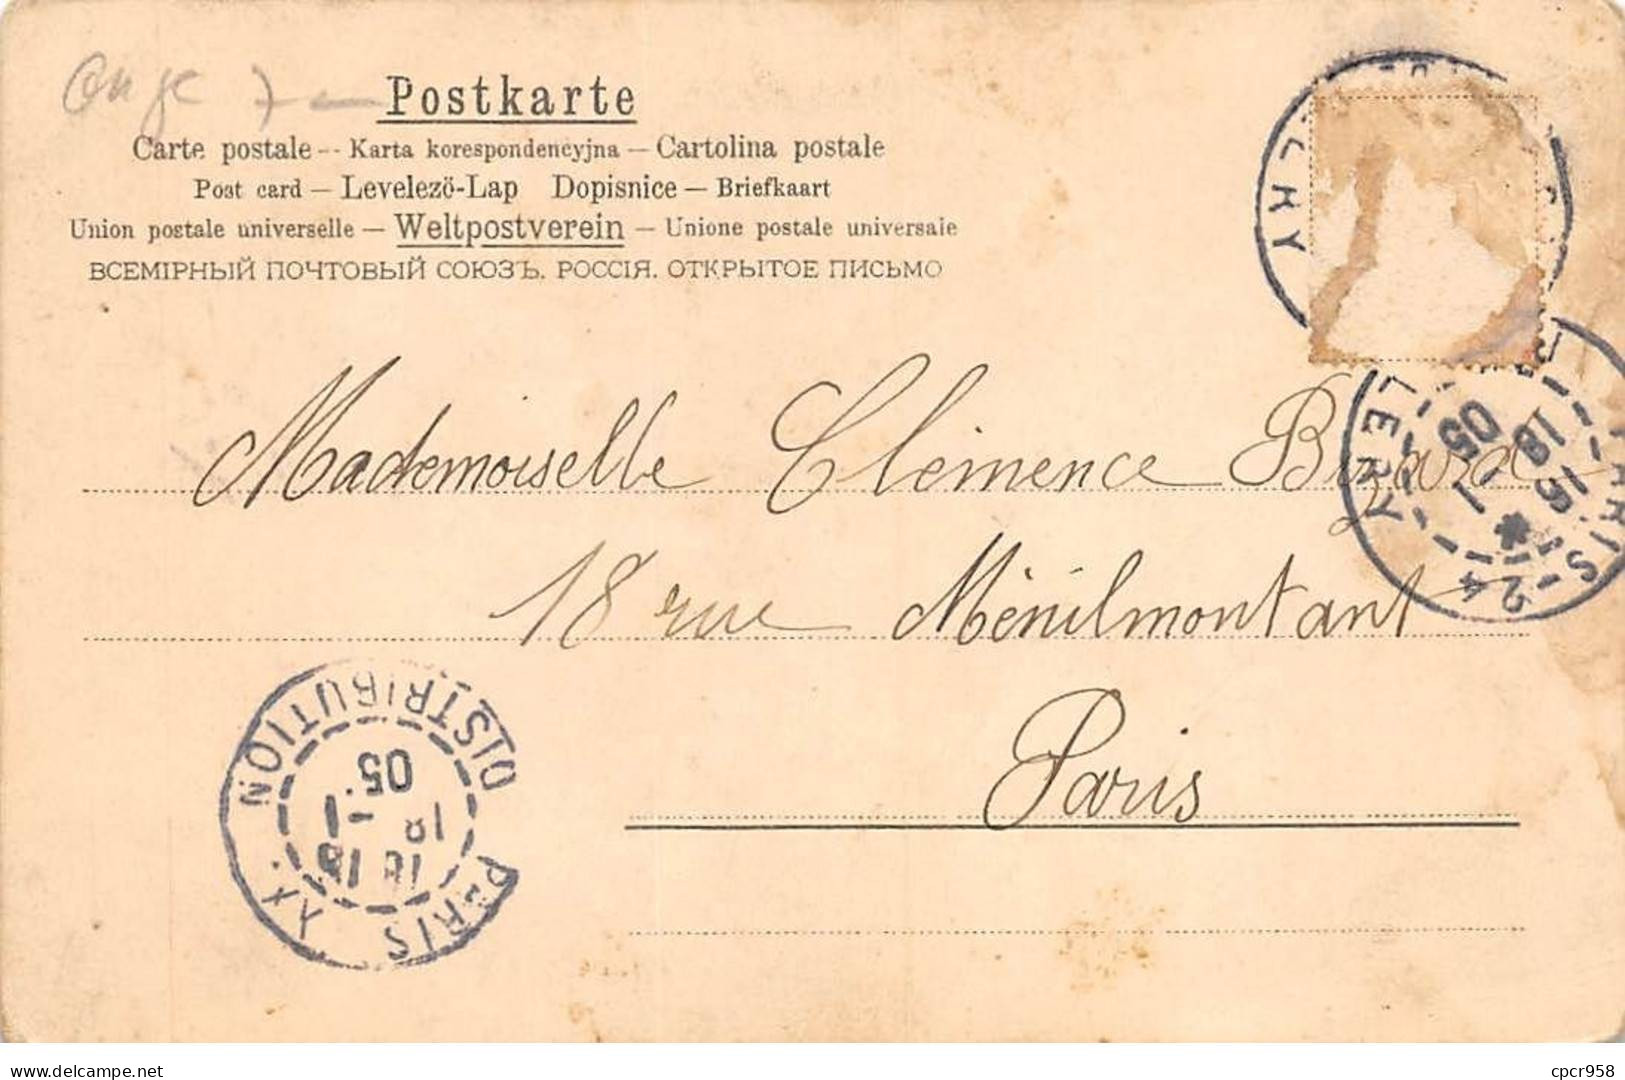 Postkarte
Carte postale -- Karta korespondencyjna — Cartolina postale
Post card — Levelező-Lap Dopisnice — Briefkaart
Union postale universelle — Weltpostverein — Unione postale universale
ВСЕМІРНЫЙ ПОЧТОВЫЙ СОЮЗЪ. РОССІЯ. ОТКРЫТОЕ ПИСЬМО
Mademoiselle Clémence
18 rue Ménilmontant
Paris
PARIS - 24
16 15
18 -1
05
PARIS XX
DISTRIBUTION
18 15
18 -1
05
www.delcampe.net
cpcr958